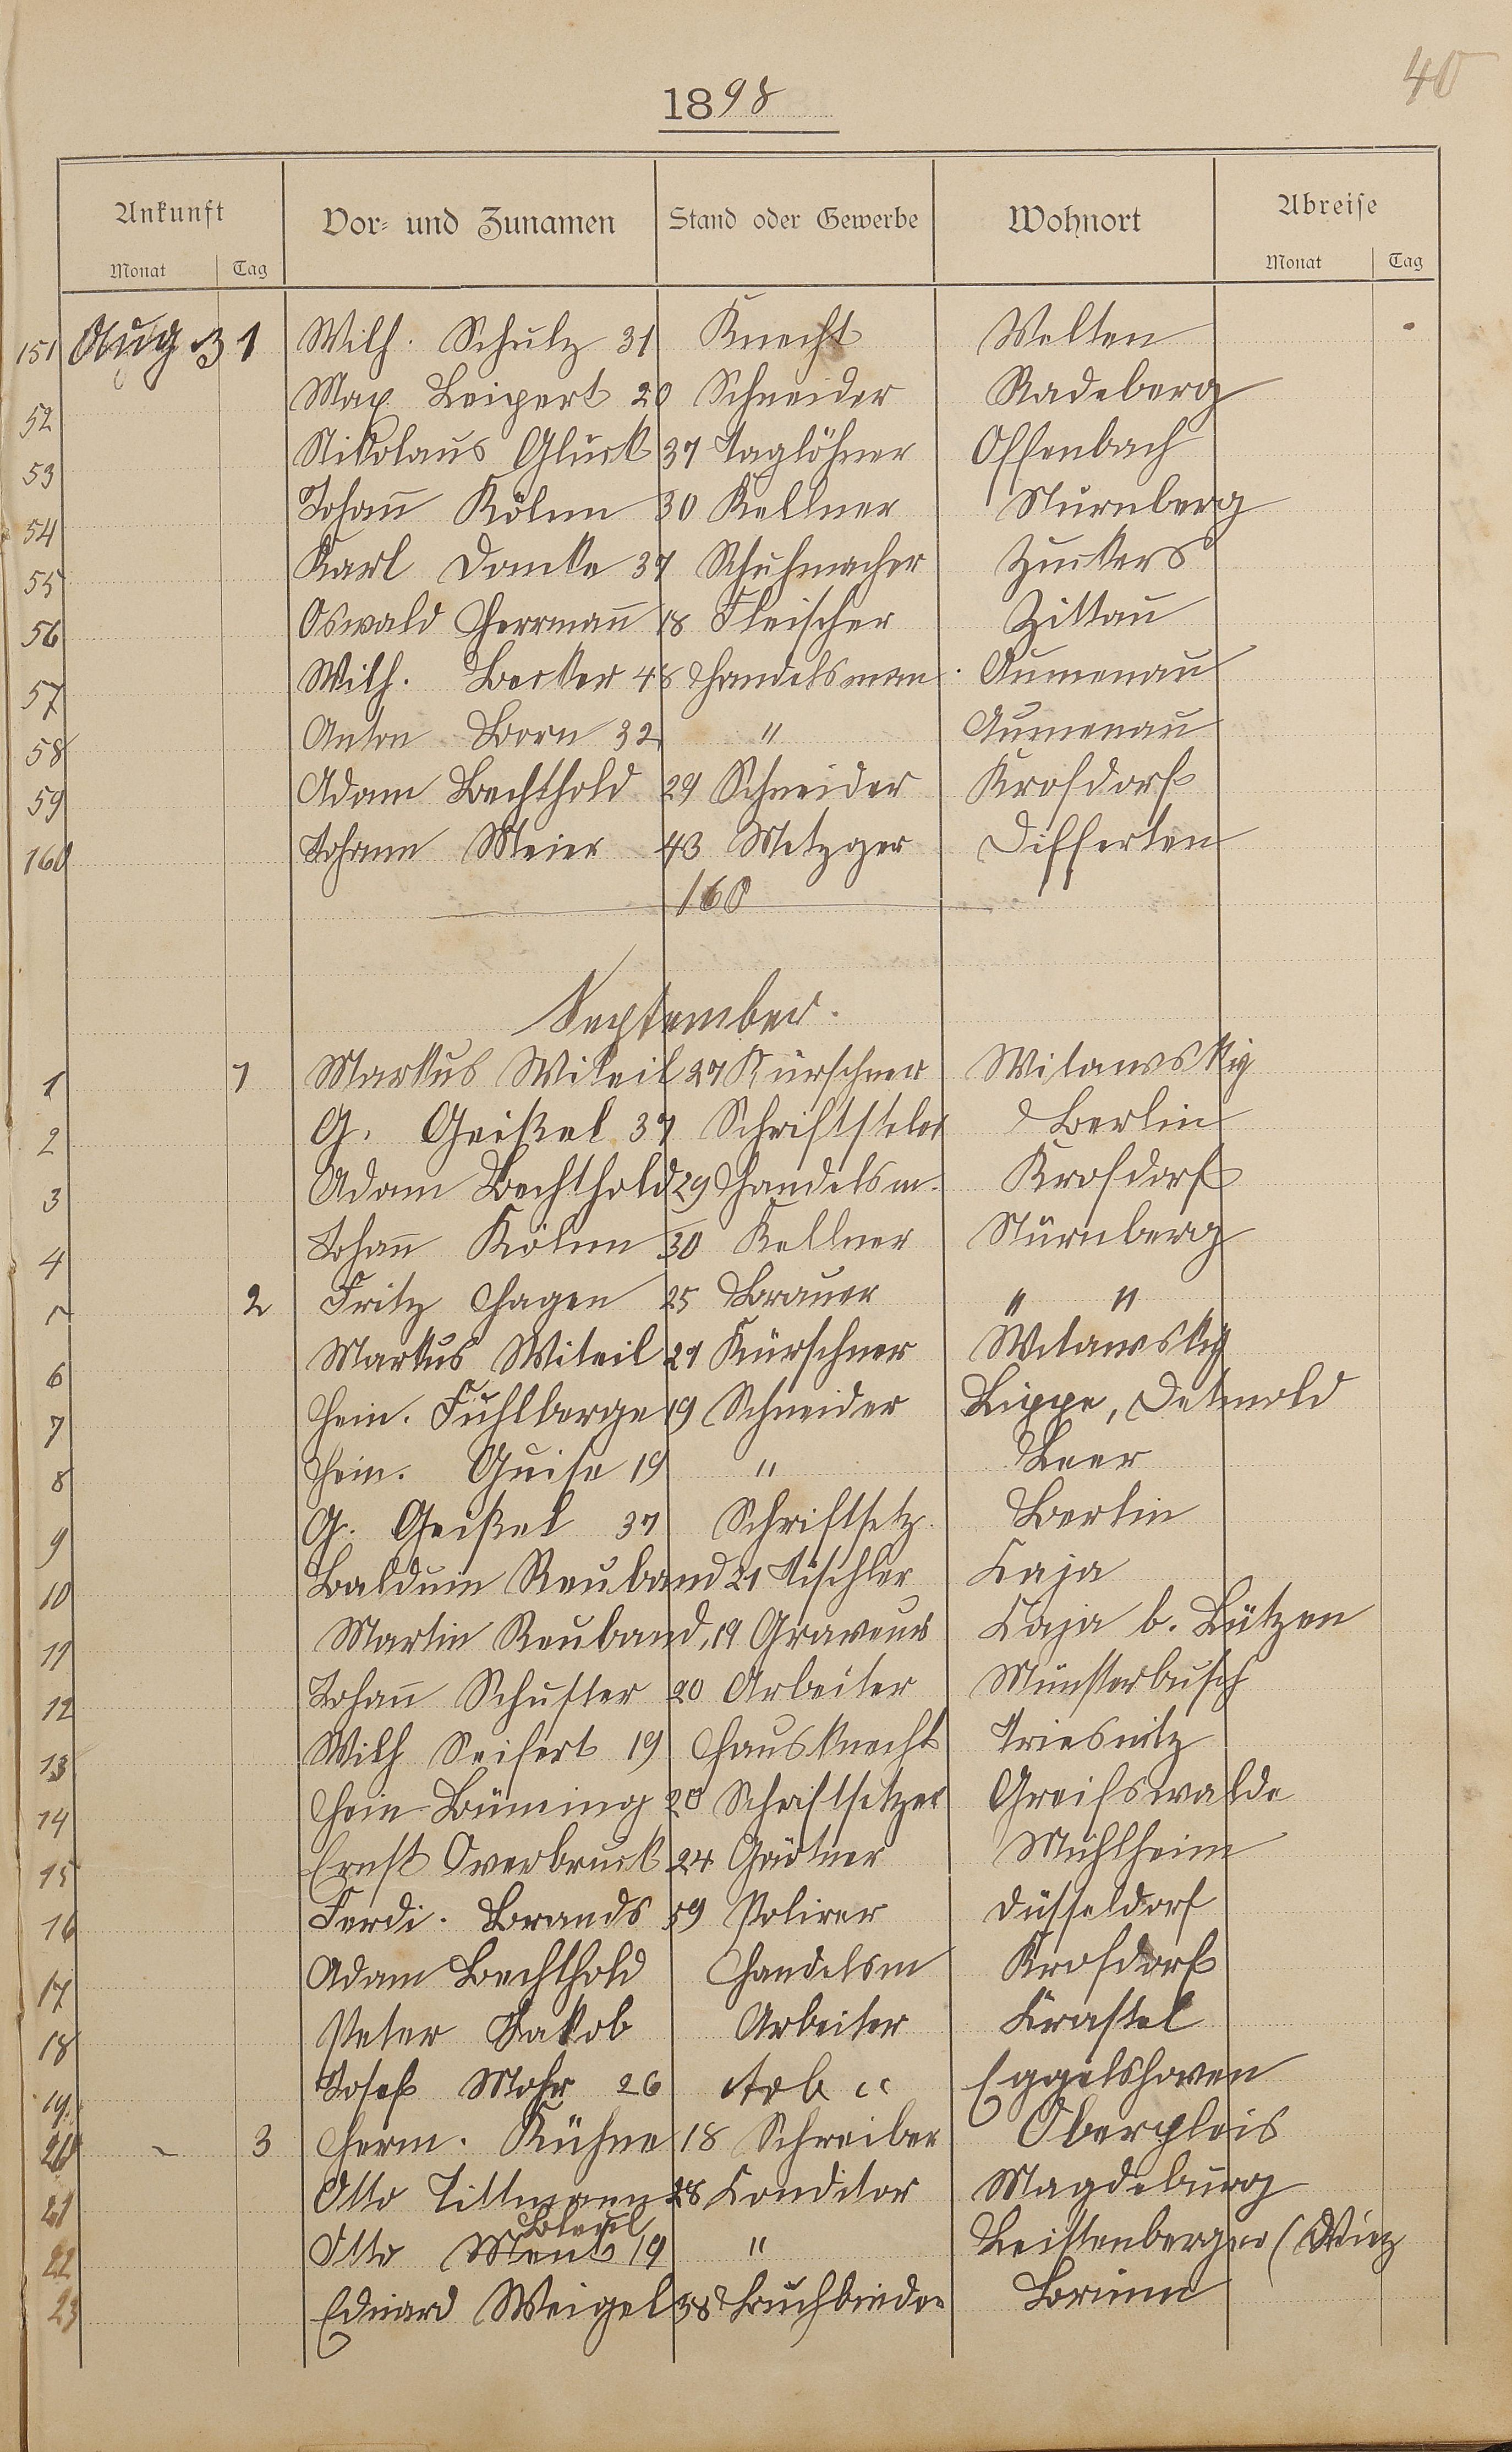 40
1898
Ankunft Vor- und Zunamen Stand oder Gewerbe Wohnort Abreise
Monat Tag Monat Tag
151 Aug 31 Wilh. Schulz 31 Knecht Welten
52 Max Leipert 20 Schneider Radeberg
53 Nikolaus Gluck 37 Taglöhner Offenbach
54 Johann̄ Kölnn 30 Kellner Nürnberg
55 Karl Domke 37 Schuhmacher Zuckers
56 Oswald Herrman̄ 18 Fleischer Zittau
57 Wilh. Becker 48 Handelsman. Aumenau
58 Anton Born 32 " Aumenau
59 Adam Bechthold 29 Schneider Krofdorf
160 Johann Meier 43 Metzger Differten
160
September.
1 1 Markus Witeil 27 Kürschner Witanvskig
2 G. Geißel 37 Schriftsteler Berlin
3 Adam Bechthold 29 Handelsm. Krofdorf
4 Johan̄ Kölnn 30 Kellner Nürnberg
5 2 Fritz Hagen 25 Brauer " "
6 Markus Witeil 27 Kürschner Witanvskig
7 Hein. Fuhlberge 19 Schneider Lippe, Detmold
8 Hein. Guise 19 " Leer
9 G. Geißel 37 Schriftsetz. Berlin
10 Balduin Reuband 21 Tischler Caja
11 Martin Reuband, 19 Graveur Caja b. Lützen
12 Johan̄ Schuster 20 Arbeiter Münsterbusch
13 Wilh Seifert 19 Hausknecht Triesnitz
14 Hein Büning 20 Schriftsetzer Greifswalde
15 Ernst Overbruck 24 Gärtner Mühlheim
16 Ferdi. Brands 59 Polirer Düsseldorf
17 Adam Bechthold Handelsm Krofdorf
18 Peter Jakob Arbeiter Krastel
19. Josef Mohr 26 Arb " Eggelshoven
20 - 3 Herm. Kühne 18 Schreiber Oberpleis
21 Otto Tittmann 28 Conditor Magdeburg
Bleyl
22 Otto 19 " Leistenberger (
23 Eduard Weigel 38 Buchbinder Brünn